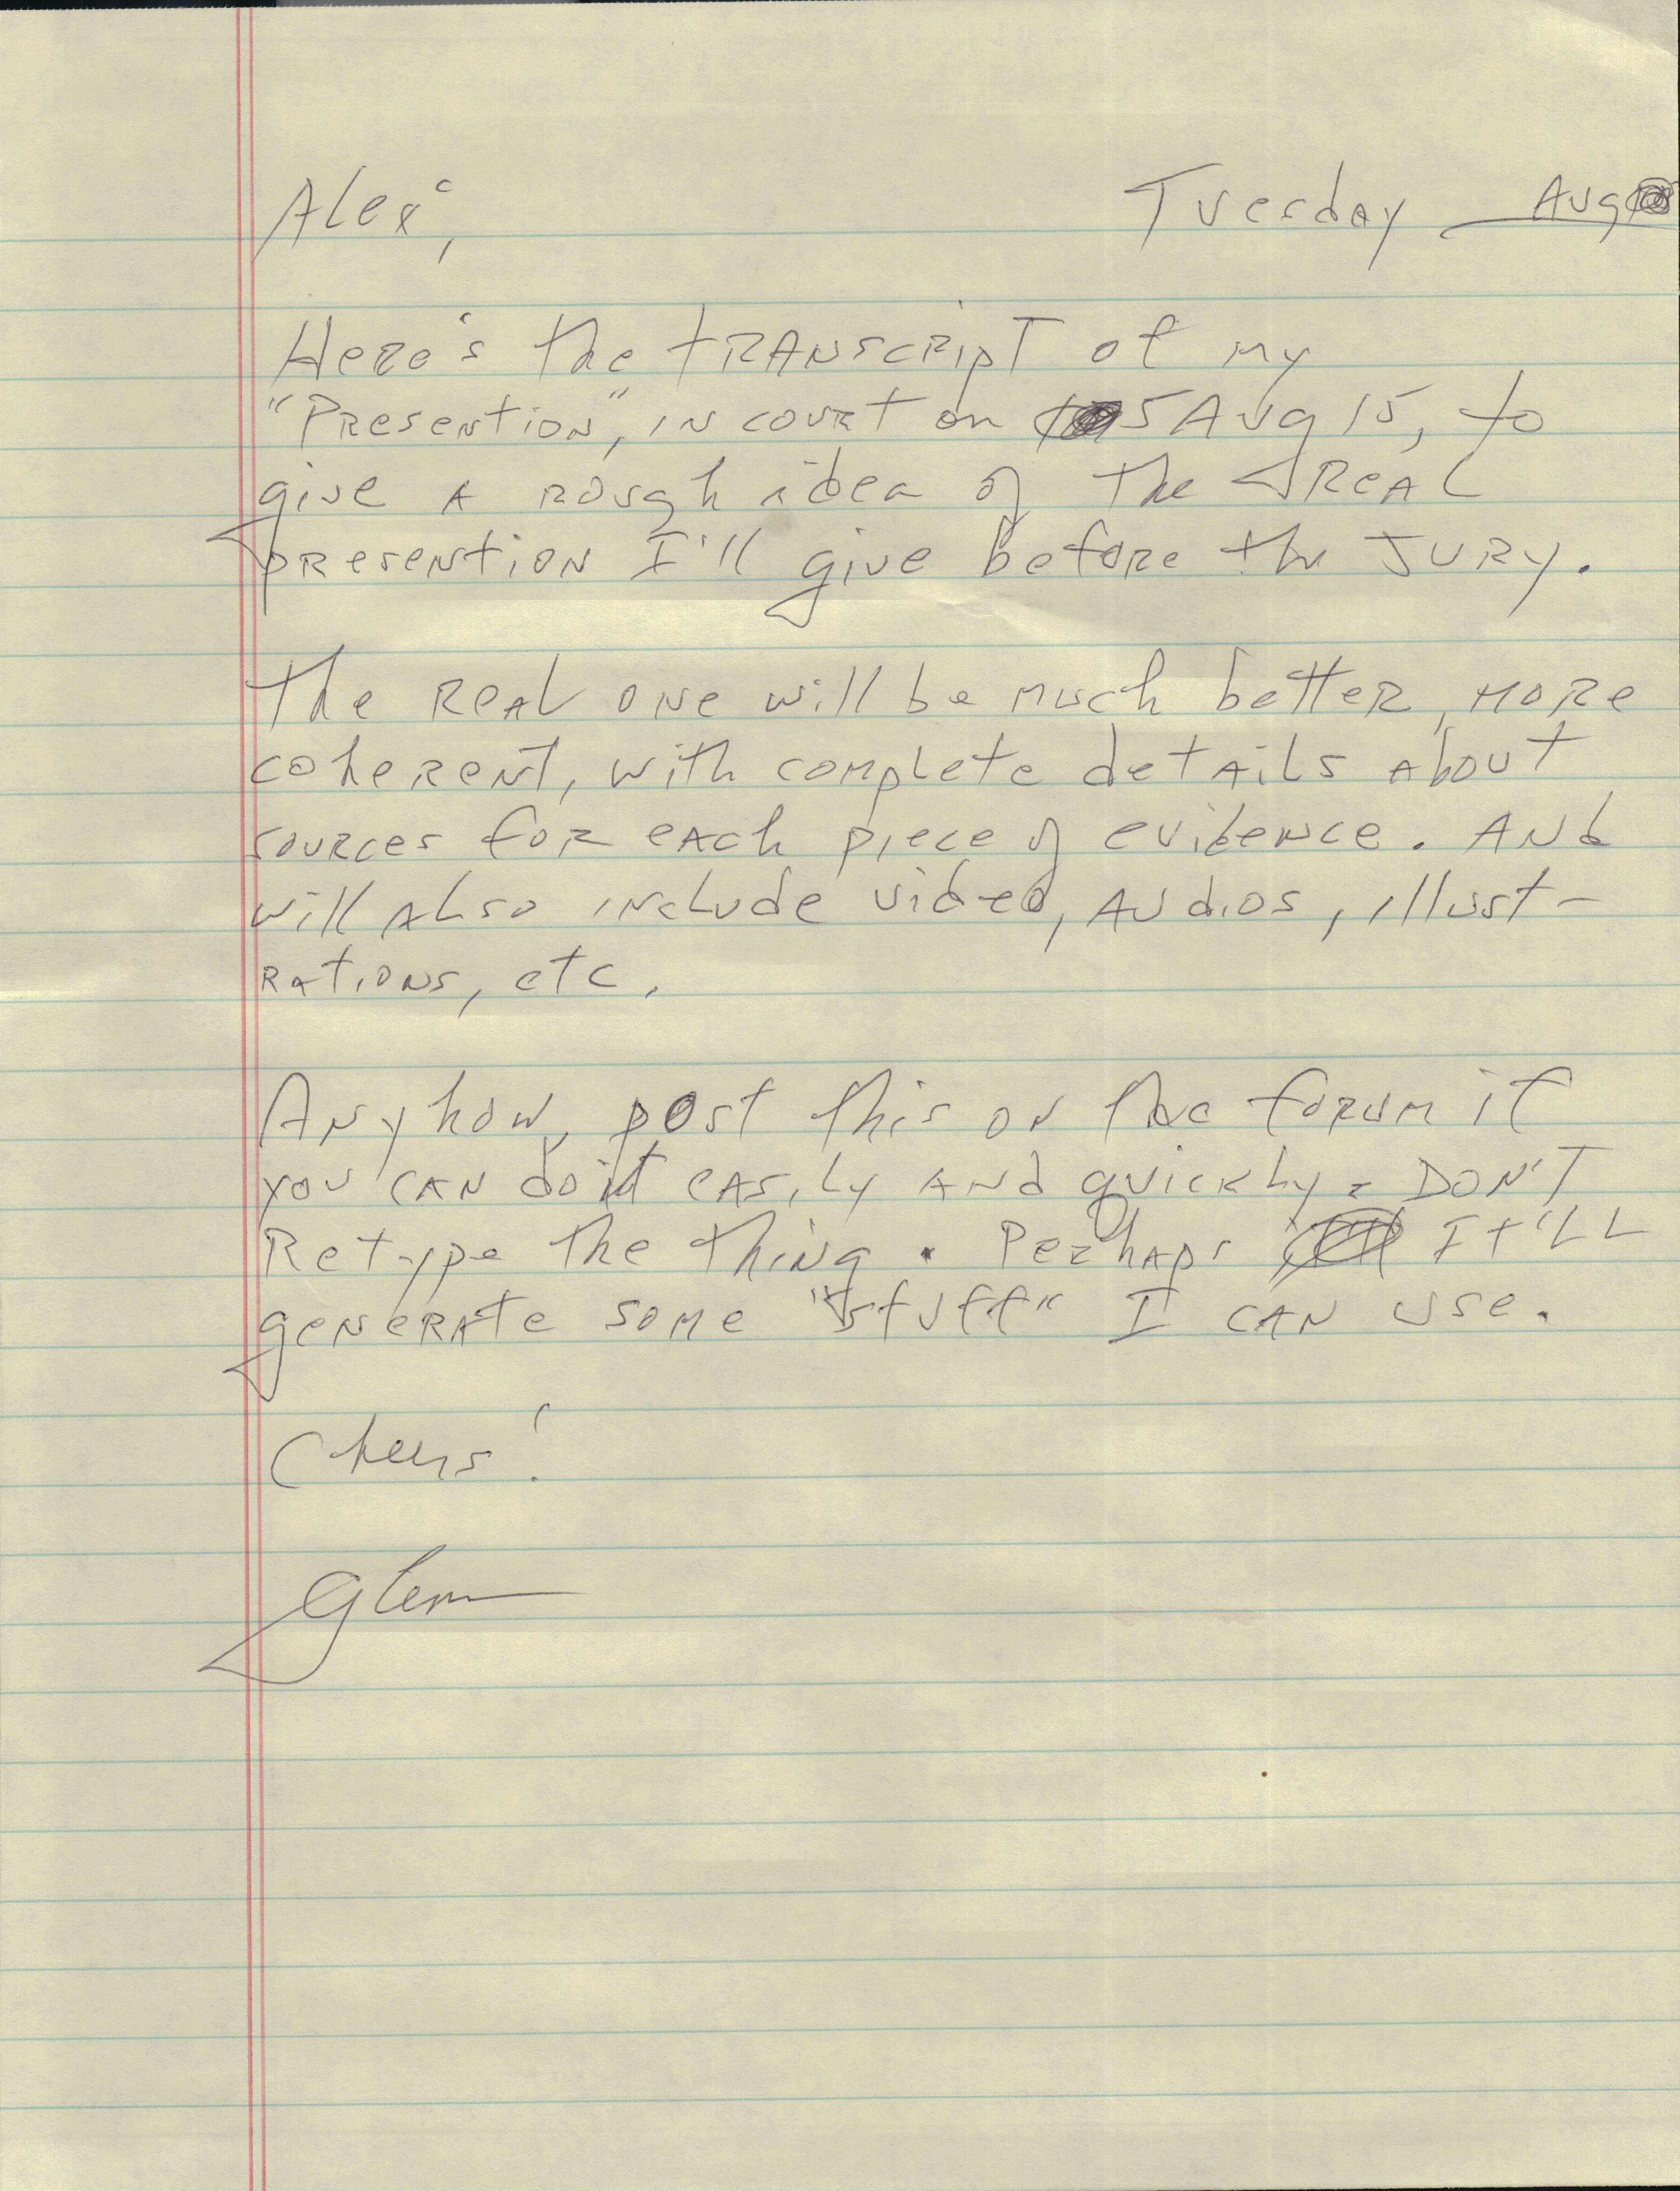 Alex, Tuesday Aug
Here's the transcript of my
"Presention", in court on 5 Aug 15, to
give a rough idea of the Real
presention I'll give before the JURY.
The Real one will be much better, more
coherent, with complete details about
sources for each piece of evidence. And
will also include video, audios, illust-
rations, etc.
Anyhow, post this on the forum if
you can do it easily and quickly - DON'T
Retype the thing. Perhaps It'll
generate some "stuff" I can use.
Cheers!
Glenn